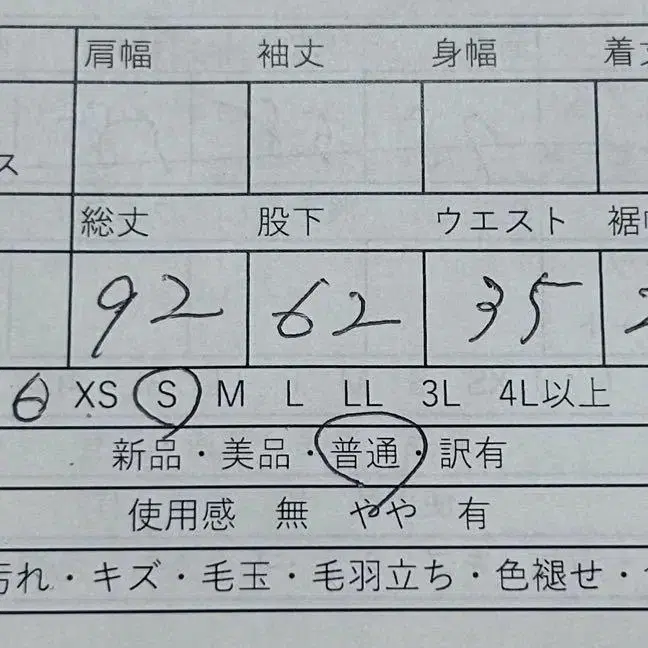 肩幅 袖丈 身幅 着丈
ス
総丈 股下 ウエスト 裾
92 62 35 2
6 XS S M L LL 3L 4L以上
新品・美品・普通・訳有
使用感 無 やや 有
汚れ・キズ・毛玉・毛羽立ち・色褪せ・